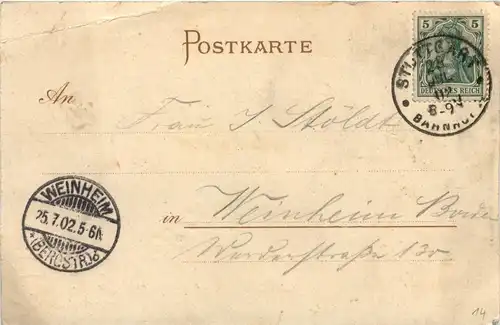 POSTKARTE
5 5
DEUTSCHES REICH
STUTTGART
8-9V
BAHNHOF
An
Frau J. Stöldt
WEINHEIM
25.7.02.5-6N.
*(BERGSTR.)*
in Weinheim Baden
Werderstraße 13
14